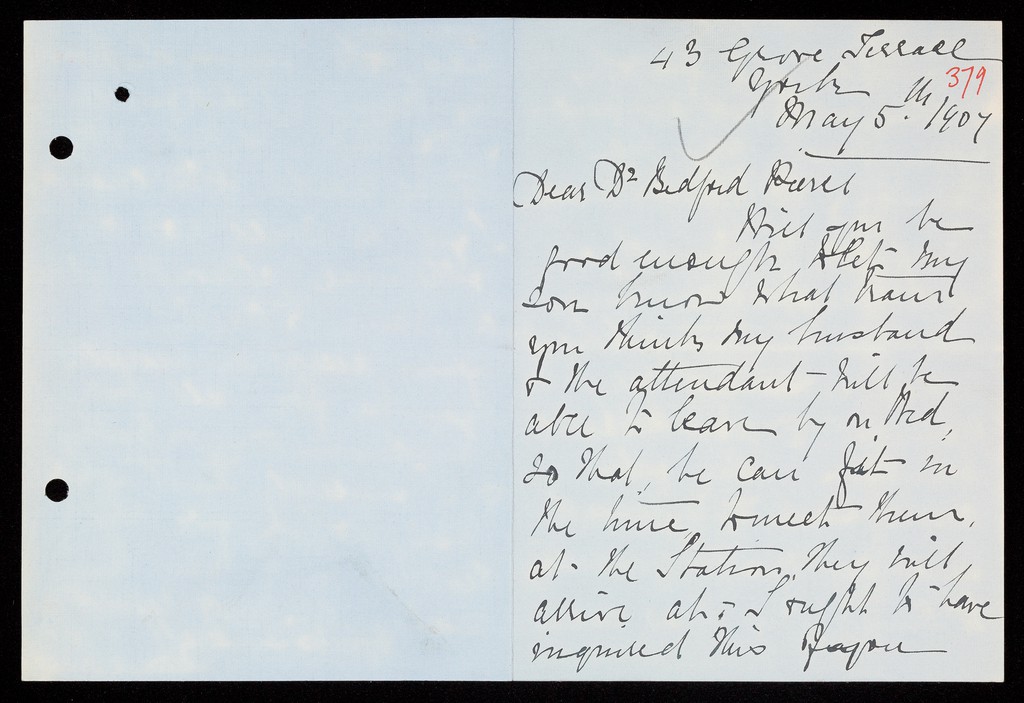 43 Grove Terrace
York 379
May 5th. 1907
Dear Dr Bedford Pierce
Will you be
good enough to let my
son know what train
you think my husband
& the attendant will be
able to leave by on Wed,
so that, he can fit in
the time, to meet them,
at the Station, they will
arrive at; I ought to have
inquired this before